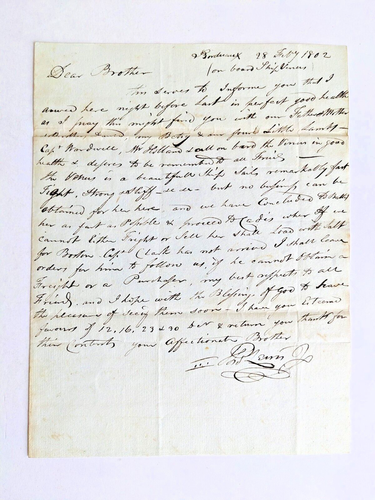 28 Feby 1802
on board Ship Venus
Dear Brother
This Serves to Inform you that I
arived here night before last in perfect good health
as I pray this might find you with our Father Mother
Betsy & our friend Little Lamb
Capt Wardwell, Mr Holland & all on board the Venus in good
health & desires to be remembered to all Friends
the Venus is a beautifull Ship Sails remarkably fast
Tight Strong & Stiff but no business can be
obtained for her here and we have Concluded to
her as fast as Possible & proceed to Cadiz where if we
cannot Either Freight or Sell her Shall Load with Salt
for Boston Capt Clark has not arrived I shall leave
orders for him to follow us, if he cannot obtain a
Freight or a Purchaser, my best respects to all
Friends, and I hope with the Blessing of God to have
the pleasure of seeing them soon I have your esteemed
favours of 12, 16, 23 & 30 & return you thanks for
their Contents your Affectionate Brother
Jr